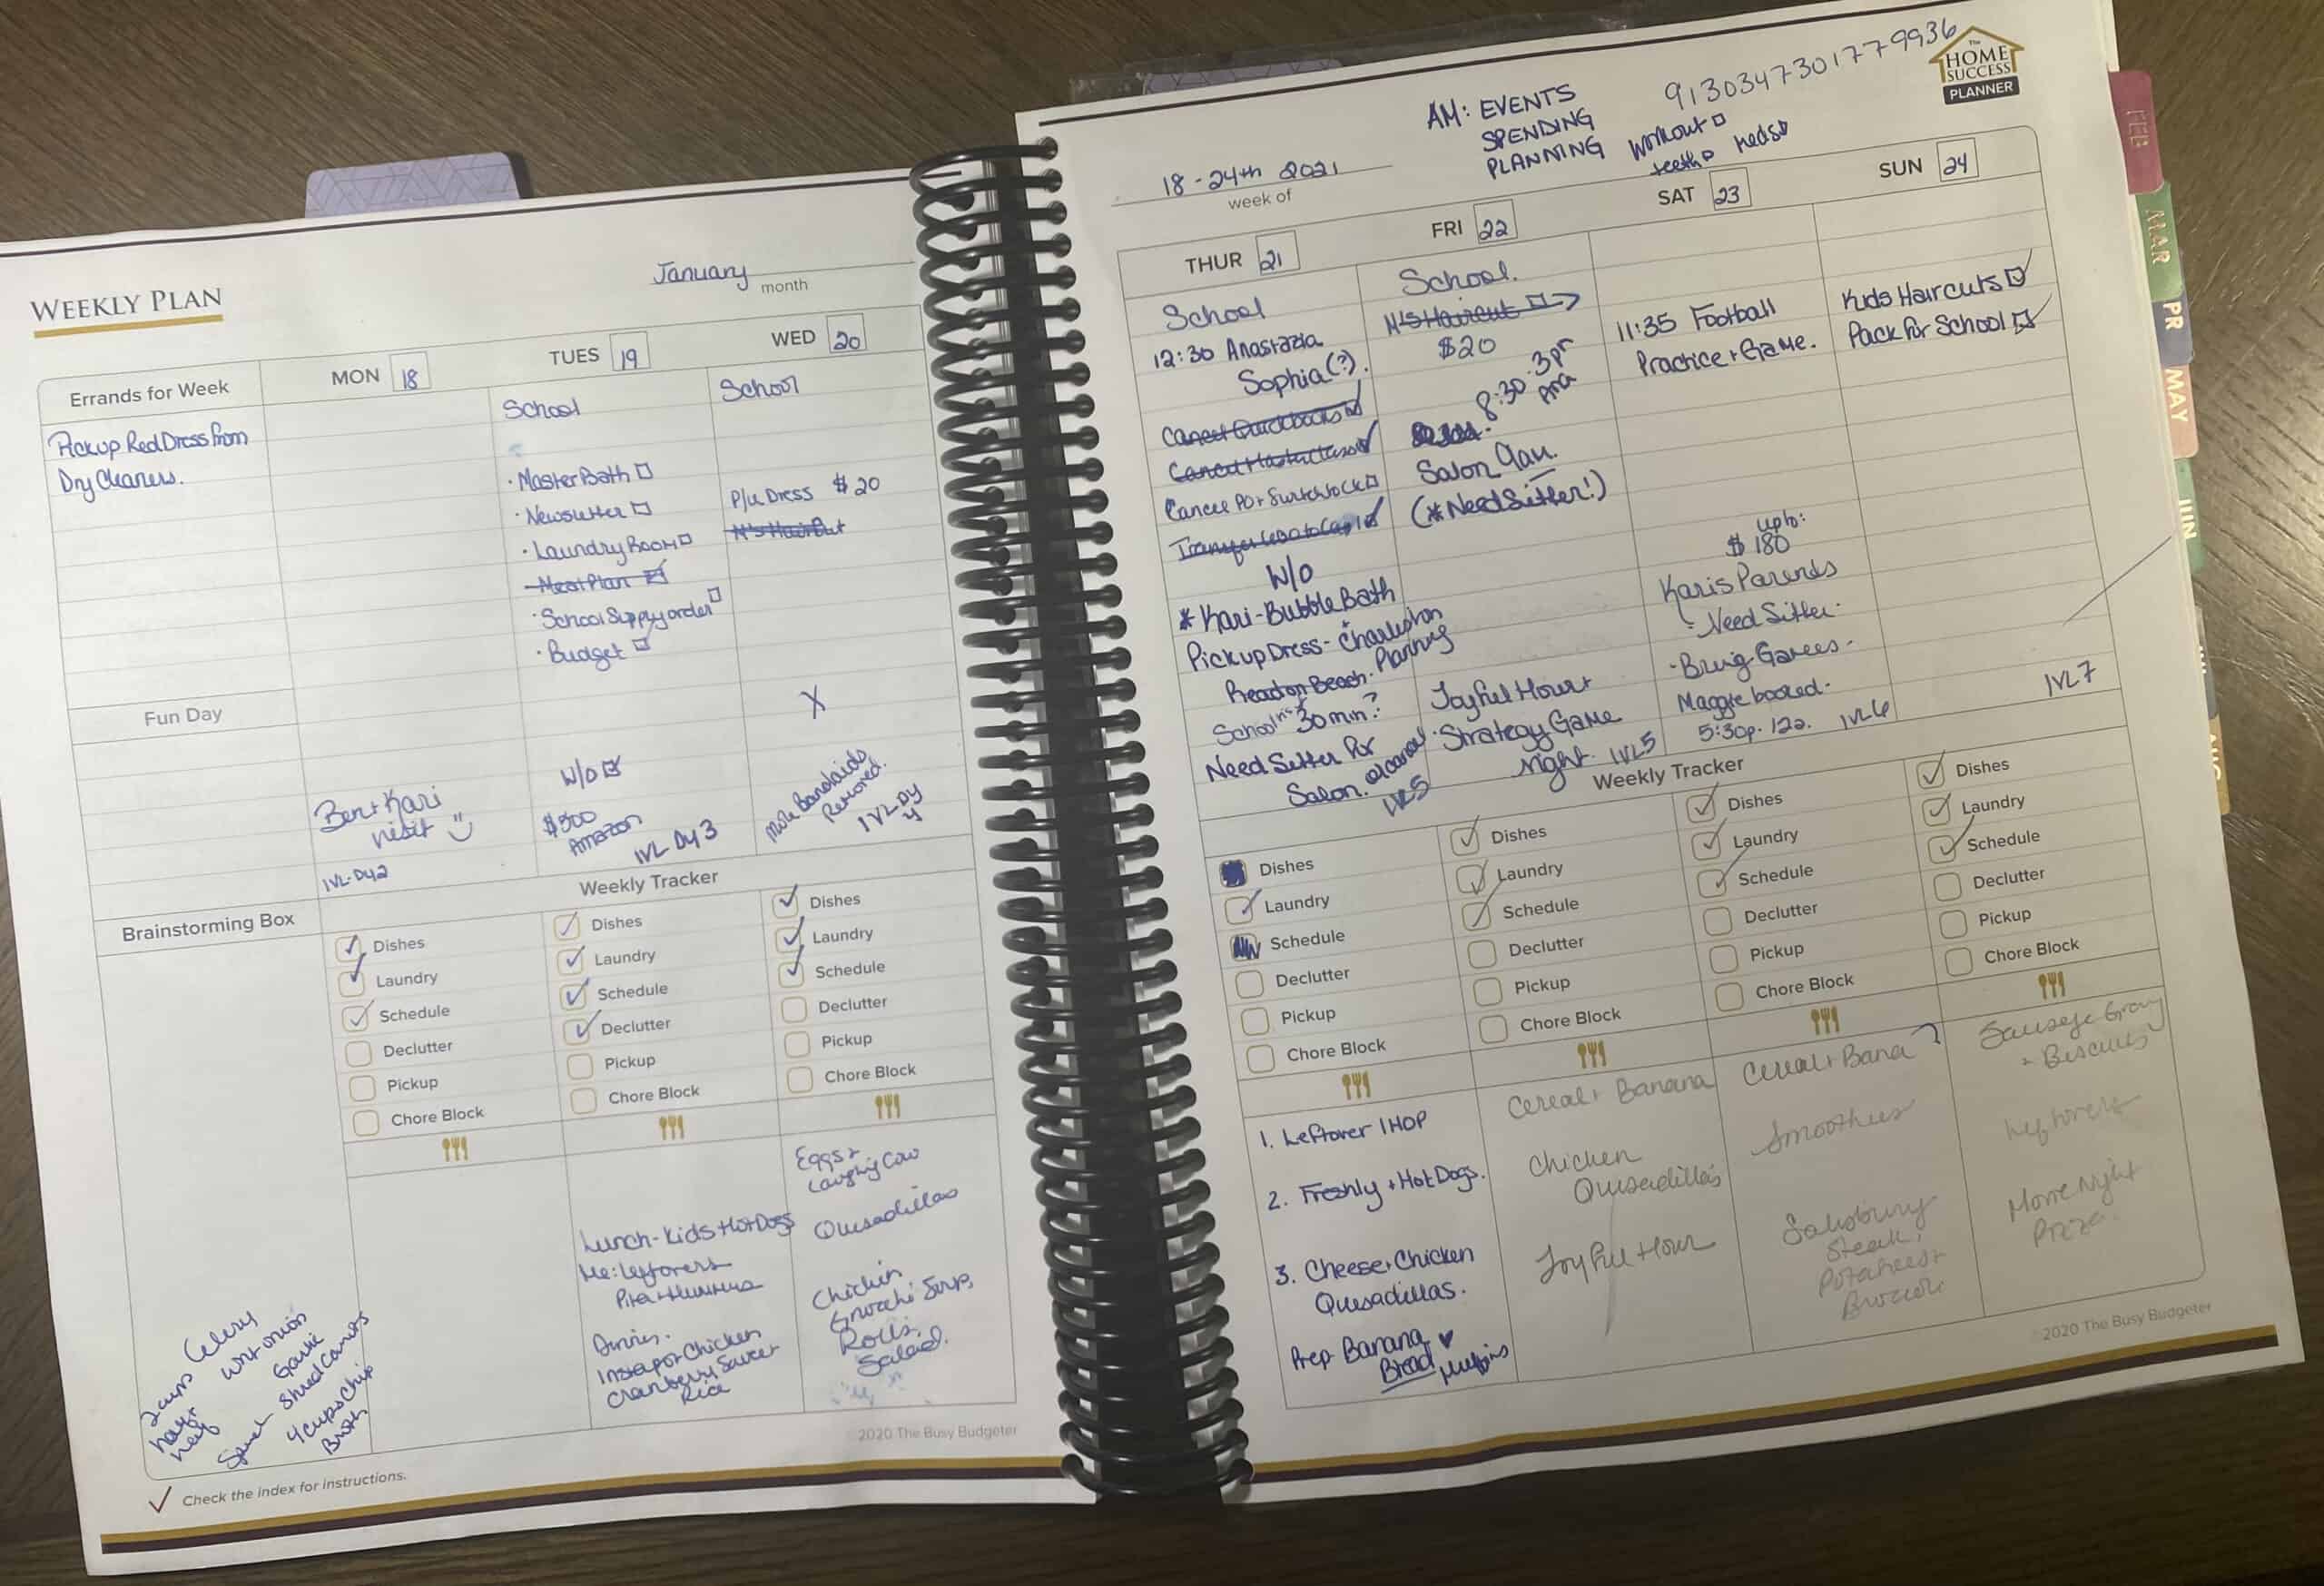 WEEKLY PLAN
January
month
Errands for Week
MON 18
TUES 19
WED 20
Pickup Red Dress from
Dry Cleaners.
Fun Day
Brainstorming Box
2 cups Celery
half + half
onion
Garlic
Shred Carrots
4 cups Chix
Broth
Ben + Kari
visit
IVL-Dy2
School
· Master Bath
· Newsletter
· Laundry Room
Meal Plan
· School Supply order
· Budget
W/O
$300
Amazon
IVL Dy 3
School
P/U Dress $20
N's HairCut
X
More Bandaids
IVL-Dy
4
Weekly Tracker
Dishes
Laundry
Schedule
Declutter
Pickup
Chore Block
Dishes
Laundry
Schedule
Declutter
Pickup
Chore Block
Dishes
Laundry
Schedule
Declutter
Pickup
Chore Block
Lunch-Kids Hot Dogs
Me: leftovers
Pita + Hummus
Dinner:
Instapot Chicken
Cranberry Sauce +
Rice
Eggs +
Laughing Cow
Quesadillas
Chicken
Gnocchi Soup,
Rolls,
Salad.
2020 The Busy Budgeter
Check the index for instructions.
18-24th 2021
week of
AM: EVENTS
SPENDING
PLANNING
9130347301779936
Workout
teeth meds
The
HOME
SUCCESS
PLANNER
THUR 21
FRI 22
SAT 23
SUN 24
School
12:30 Anastazia
Sophia (?).
Cancel Quickbooks
Cancel Masterclass
Transfer
W/O
* Kari-Bubble Bath
Pickup Dress - Charleston
Planning
Read on Beach.
School
30 min?
Need Sitter for
Salon.
IVL5
School.
N's Haircut
$20
8:30-3pm
Salon 9am.
(*Need Sitter!)
Joyful Hour +
Strategy Game
night. IVL5
11:35 Football
Practice + Game.
upto:
$180
Karis Parents
- Need Sitter.
- Bring Games -
Maggie booked.
5:30p-12a. IVL6
Kids Haircuts
Pack for School
IVL7
Weekly Tracker
Dishes
Laundry
Schedule
Declutter
Pickup
Chore Block
Dishes
Laundry
Schedule
Declutter
Pickup
Chore Block
Dishes
Laundry
Schedule
Declutter
Pickup
Chore Block
Dishes
Laundry
Schedule
Declutter
Pickup
Chore Block
1. Leftover IHOP
2. Freshly + Hot Dogs.
3. Cheese + Chicken
Quesadillas.
Prep Banana
Bread Muffins
Cereal + Banana
Chicken
Quesadillas
Joyful Hour
Cereal + Bana
Smoothies
Salisbury
Steak,
Potatoes +
Broccoli
Sausage Gravy
+ Biscuits
Leftovers
Movie Night
Pizza.
2020 The Busy Budgeter
FEB
MAR
PR
MAY
JUN
AUG